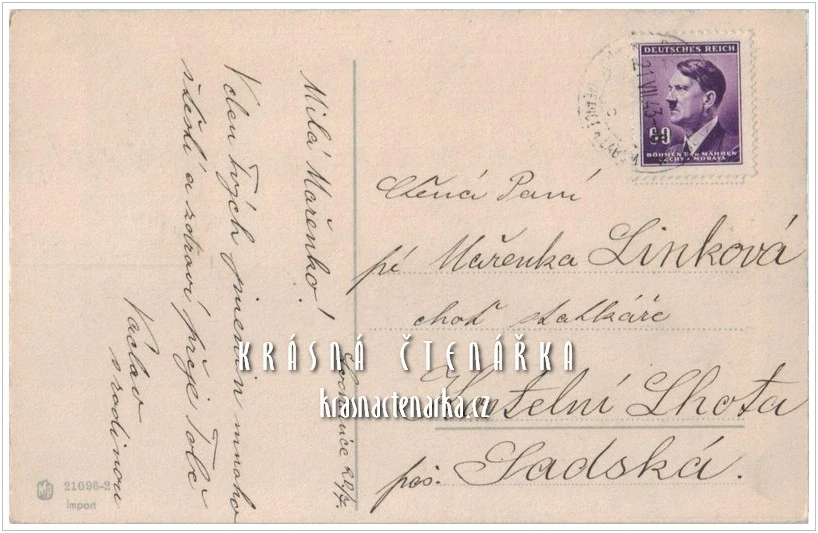 Milá Mařenko!
V den Tvých jmenin mnoho
štěstí a zdraví přeje Tobě
Václav
s rodinou
22/7.
DEUTSCHES REICH
21.VII.43
60
BÖHMEN u. MÄHREN
ČECHY a MORAVA
Ctěná Paní
pí Mařenka Linková
choť
Kostelní Lhota
Sadská.
KRÁSNÁ ČTENÁŘKA
krasnactenarka.cz
21096-2
Import